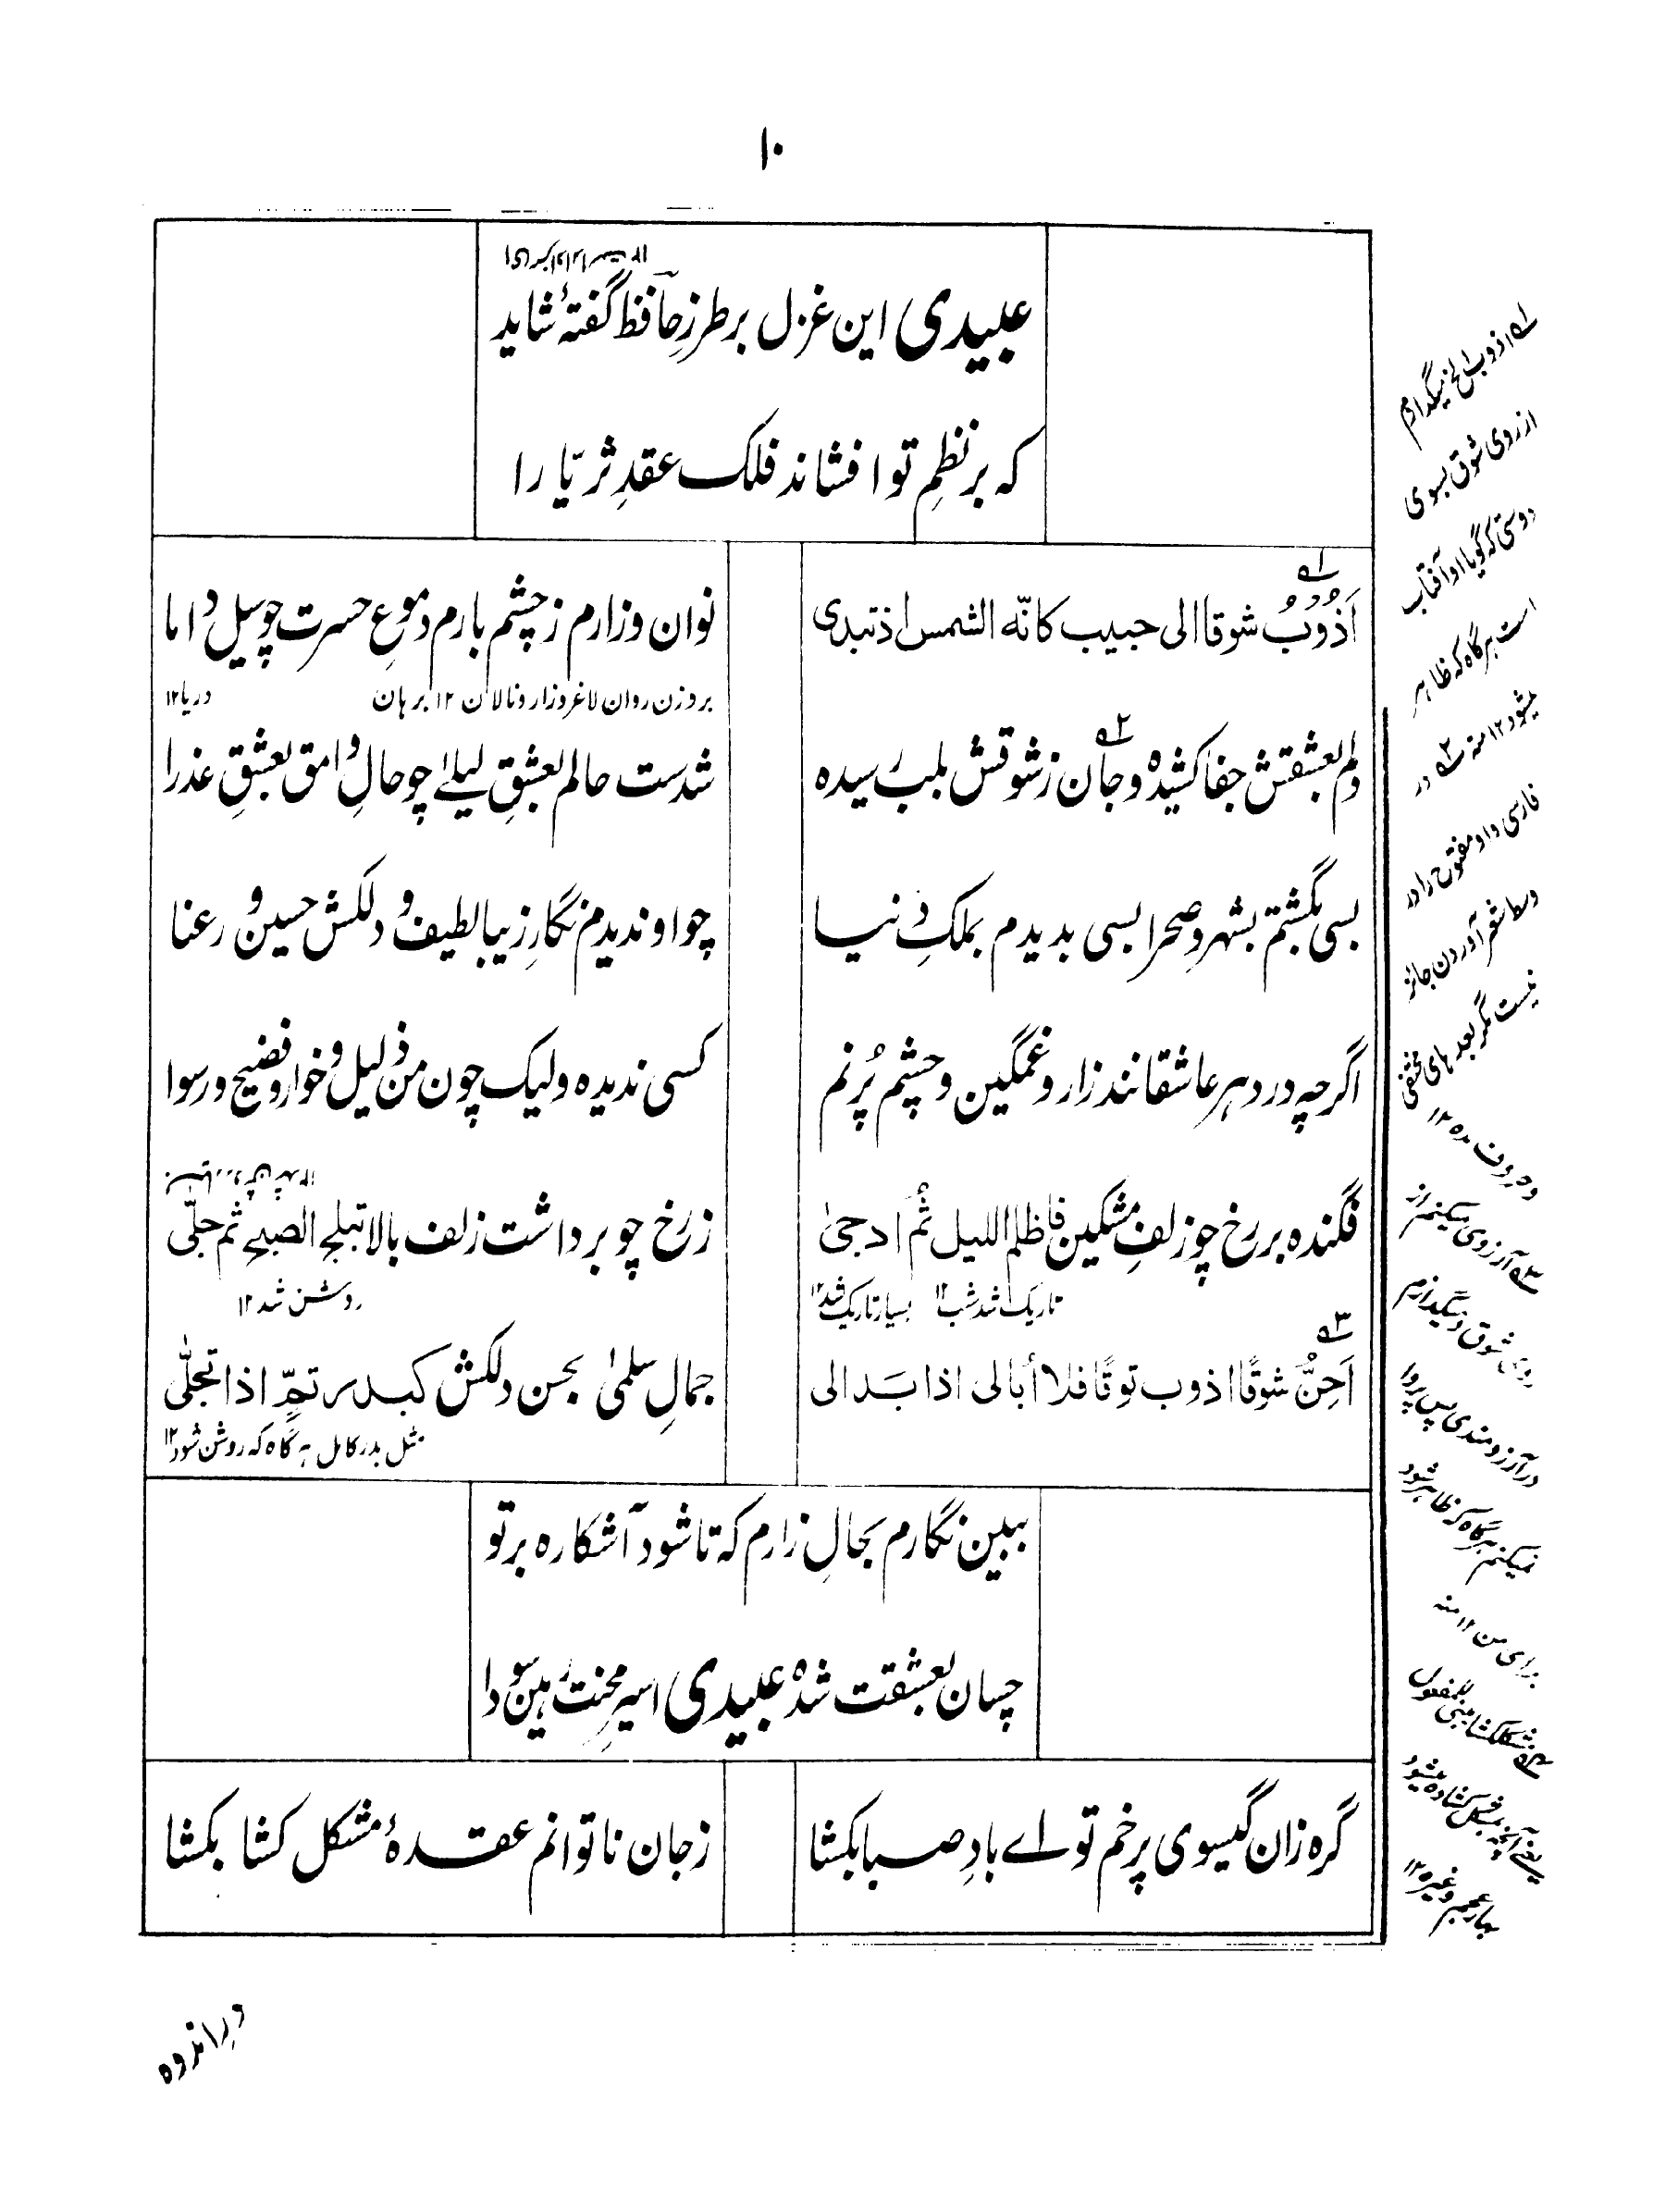 ۱۰
عبیدی این غزل بر طرزِ حافظ گفتهٔ شاید
که بر نظمِ تو افشاند فلک عقدِ ثریّا را
۱ه
اَذُوبُ شوقا الی حبیب کانّه الشمس اذ تبدی
نوان و زارم ز چشم بارم دموعِ حسرت چو سیلِ داما
بروزن روان لاغر و زار و نالان ۱۲ برهان
دریا ۱۲
۲ه
دلم بعشقش جفا کشیده و جان ز شوقش بلب رسیده
شدست حالم بعشقِ لیلے چو حالِ وامق بعشقِ عذرا
بسی بگشتم بشهر و صحرا بسی بدیدم بملکِ دنیا
چو او ندیدم نگارِ زیبا لطیف و دلکش حسین و رعنا
اگرچه در دهر عاشقانند زار و غمگین و چشم پُر نم
کسی ندیده ولیک چون من ذلیل و خوار و فضیح و رسوا
فگنده بر رخ چو زلفِ مشکین فاظلم اللیل ثُم ادجیٰ
زرخ چو برداشت زلف بالا تبلج الصبح ثم جلّی
تاریک شد شب ۱۲ بسیار تاریک شد ۱۲
روشن شد ۱۲
۳ه
اَحِنُّ شوقًا اذوب توقًا فلا أبالی اذا بَدا لی
جمالِ سلمیٰ بحسن دلکش کبدر تمّ اذا تجلّی
مثل بدر کامل هر گاه که روشن شود ۱۲
ببین نگارم بحالِ زارم که تا شود آشکاره بر تو
چسان بعشقت شده عبیدی اسیرِ محنت رهین سودا
گره زان گیسوی پر خم تو اے بادِ صبا بکشا
ز جان ناتوانم عقدهٔ مشکل کشا بکشا
۱ه اذوب الخ میگدازم
از روی شوق بسوی
دوستی که گویا او آفتاب
است هر گاه که ظاهر
میشود ۱۲ منه ۲ه در
فارسی واو مفتوح را در
وسط شعر آوردن جائز
نیست مگر بعد های مختفی
و حروف مده ۱۲
۳ه آرزوی میکنم از
روی شوق و میگدازم
در آرزومندی پس پروا
نمیکنم هر گاه که ظاهر شود
برای من ۱۲ منه
۴ه مشکل کشا مبنی للمفعول
یعنی آنچه بمشکل کشاده میشود
بهار عجم وغیره ۱۲
در اندوه